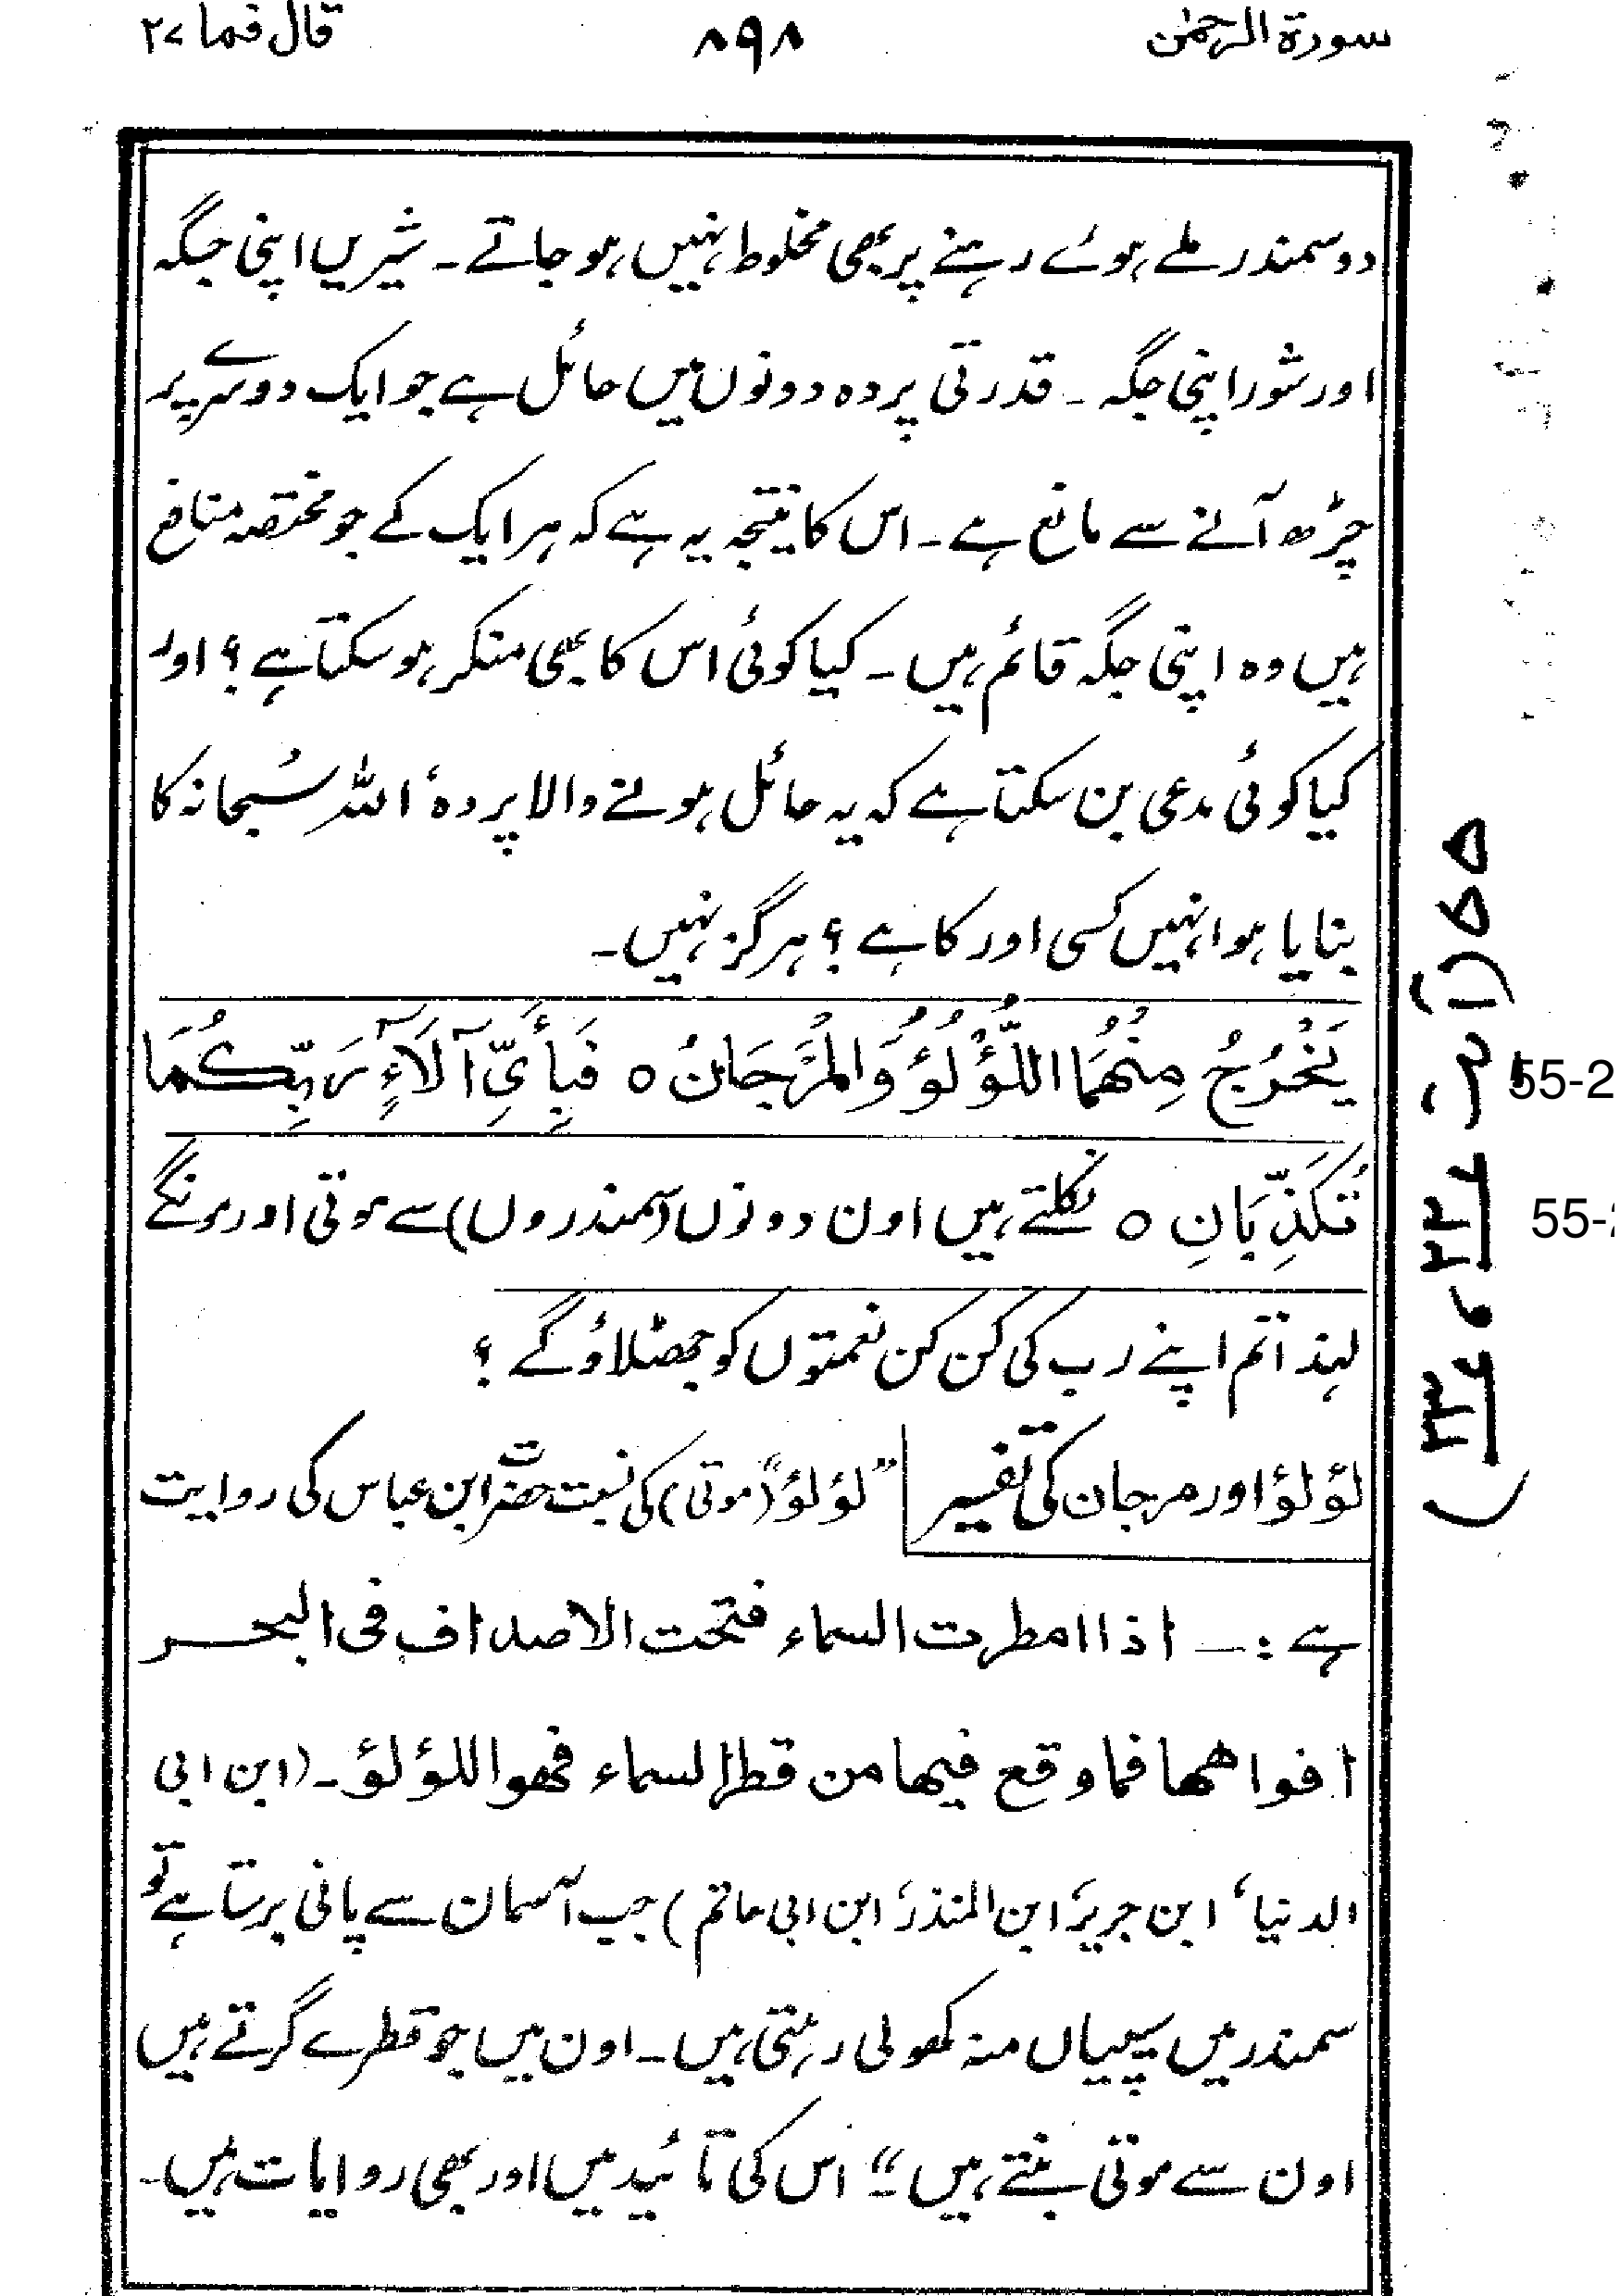 سورۃ الرحمٰن ۸۹۸ قال فما ۲۷
دو سمندر ملے ہوئے رہنے پر بھی مخلوط نہیں ہو جاتے ۔ شیریں اپنی جگہ
اور شور اپنی جگہ ۔ قدرتی پردہ دونوں میں حائل ہے جو ایک دوسرے پر
چڑھ آنے سے مانع ہے ۔ اس کا نتیجہ یہ ہے کہ ہر ایک کے جو مختصہ منافع
ہیں وہ اپنی جگہ قائم ہیں ۔ کیا کوئی اس کا بھی منکر ہو سکتا ہے ؟ اور
کیا کوئی مدعی بن سکتا ہے کہ یہ حائل ہونے والا پردہ ٗ اللہ سُبحانہ کا
بنایا ہوا نہیں کسی اور کا ہے ؟ ہرگز نہیں ۔
يَخْرُجُ مِنْهُمَا اللُّؤْلُؤُ وَالْمَرْجَانُ ٥ فَبِأَيِّ آلَآءِ رَبِّكُمَا
تُكَذِّبَانِ ٥ نکلتے ہیں اون دونوں (سمندروں) سے موتی اور مونگے
لہذا تم اپنے رب کی کن کن نعمتوں کو جھٹلاؤ گے ؟
لؤلؤ اور مرجان کی تفسیر "لؤلؤ" (موتی) کی نسبت حضرت ابن عباس کی روایت
ہے :۔ اذا امطرت السماء فتحت الاصداف فی البحر
افواھھا فما وقع فیھا من قطر السماء فھو اللؤلؤ ۔ (ابن ابی
الدنیا ٗ ابن جریر ٗ ابن المنذر ٗ ابن ابی حاتم) جب آسمان سے پانی برستا ہے تو
سمندر میں سیپیاں منہ کھولی رہتی ہیں ۔ اون میں جو قطرے گرتے ہیں
اون سے موتی بنتے ہیں ۔" اس کی تائید میں اور بھی روایات ہیں ۔
۵۵ (آیت ۲۲ و ۲۳)
55-2
55-2